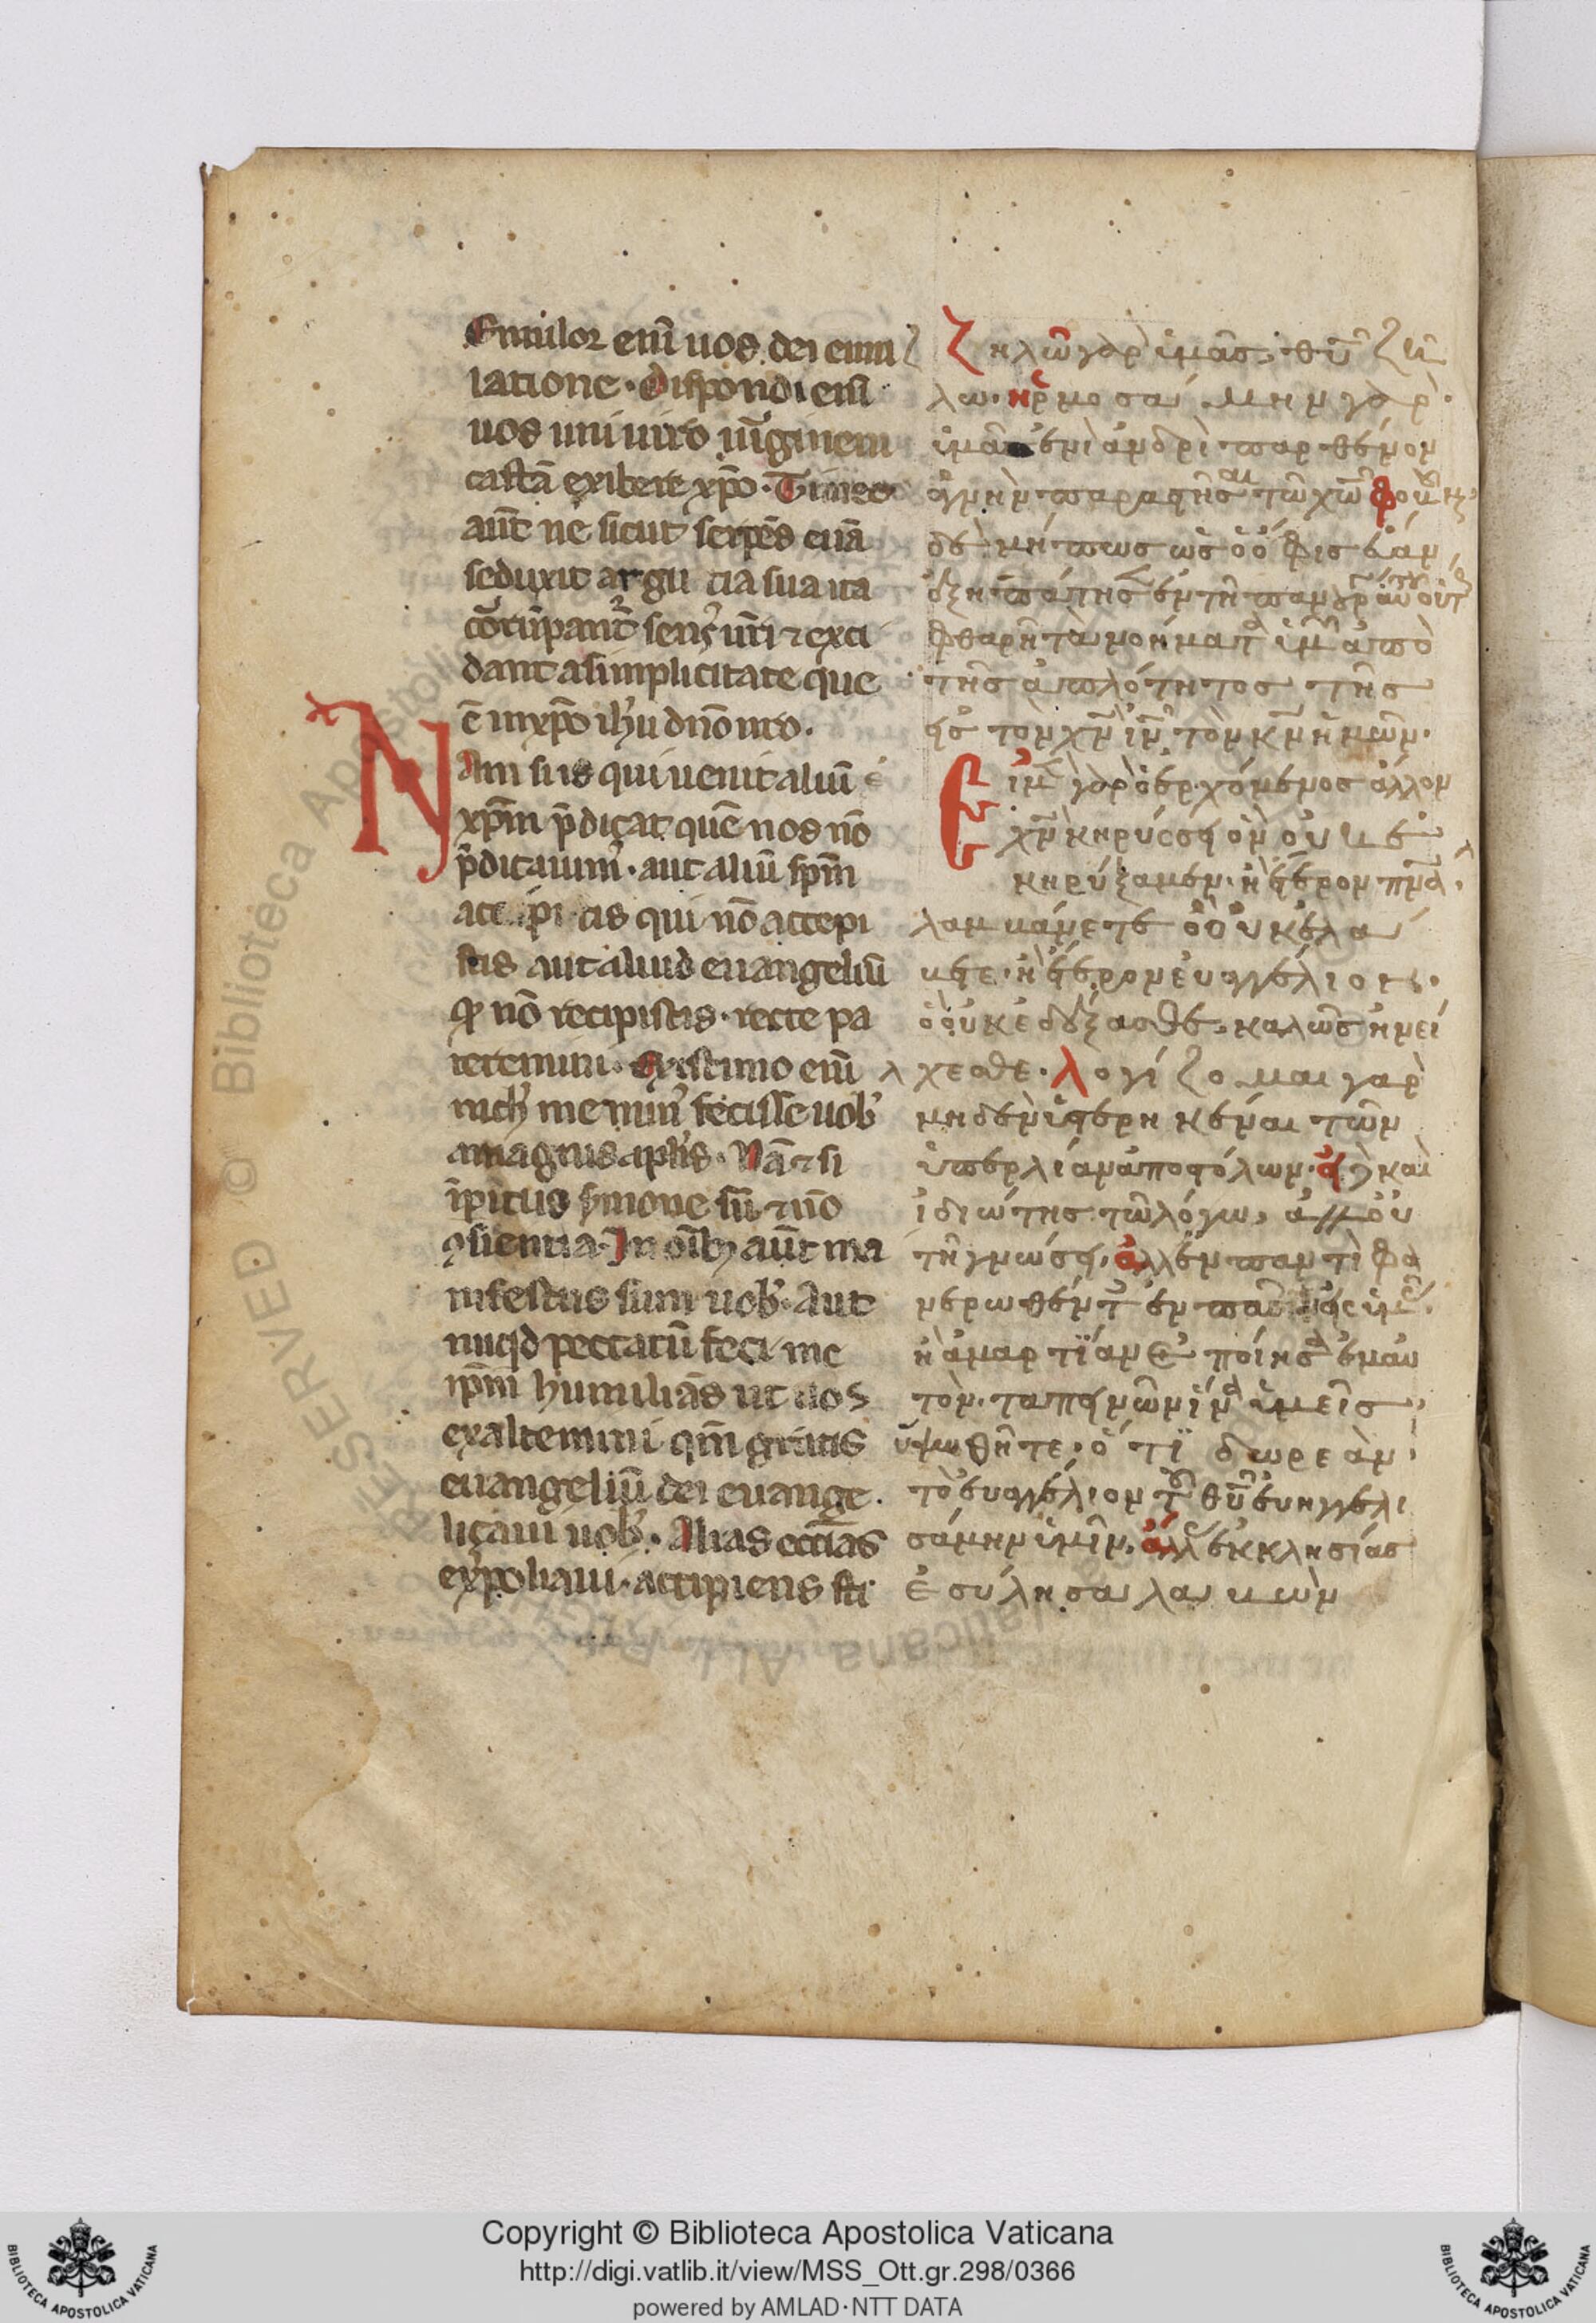 Emulor enī uos dei emu
latione · Dispondi enī
uos uni uiro uirginem
castā exibere xp̄o · Timeo
aut̄ ne sicut serpēs euā
seduxit argu tia sua ita
corrūpant̄ sensꝰ ur̄i ⁊ exci
dant a simplicitate que
ē in xp̄o ihū dn̄o nr̄o ·
Nam si is qui uenit aliū
xp̄m p̄dicat quē nos nō
p̄dicauimꝰ · aut aliū sp̄m
accipi tis qui nō accepi
stis aut aliud euangeliū
qd̄ nō recipistis · recte pa
teremini · Existimo enī
nich̄ me minꝰ fecisse uob̄
a magnis apl̄is · Nā ⁊ si
īperitus sermone sū ⁊ nō
ꝯsientia · In oībꝫ aut̄ ma
nifestus sum uob̄ · Aut
nūqd peccatū feci me
ip̄m humiliās ut uos
exaltemini qm̄ gratis
euangeliū dei euange
liçaui uob̄ · Alias eccl̄ias
expoliaui · accipiens sti
Ζηλῶ γὰρ ὑμᾶς θῡ ζή
λω · ἡρμοσάμην γὰρ ·
ὑμᾶς ἑνὶ ἀνδρὶ παρθένον
ἁγνὴν παραστῆσαι τῶ χω̄ φοβοῦμαι
δὲ μήπως ὡς ὁ ὄφις εὔαν
ἐξηπάτησεν ἐν τῆ πανουργία αὐτοῦ οὕτω
φθαρῆ τὰ νοήματα ὑμῶν ἀπὸ
τῆς ἁπλότητος τῆς
εἰς τὸν χν̄ ιν̄ τὸν κν̄ ἡμῶν ·
Εἰ μὲν γὰρ ὁ ἐρχόμενος ἄλλον
χν̄ κηρύσσει ὃν οὐκ ἐ
κηρύξαμεν · ἢ ἕτερον πνᾱ
λαμβάνετε ὃ οὐκ ἐλά
βετε · ἢ ἕτερον εὐαγγέλιον ·
ὃ οὐκ ἐδέξασθε · καλῶς ἠνεί
χεσθε · λογίζομαι γὰρ
μηδὲν ὑστερηκέναι τῶν
ὑπερλίαν ἀποστόλων · εἰ καὶ
ἰδιώτης τῶ λόγω, ἀλλ' οὐ
τῆ γνώσει, ἀλλ' ἐν παντὶ φα
νερωθέντες ἐν πᾶσιν εἰς ὑμᾶς ·
ἢ ἁμαρτίαν ἐποίησα ἐμαυ
τὸν · ταπεινῶν ἵνα ὑμεῖς
ὑψωθῆτε · ὅτι δωρεὰν
τὸ εὐαγγέλιον τοῦ θῡ εὐηγγελι
σάμην ὑμῖν · ἄλλας ἐκκλησίας
ἐσύλησα λαβὼν
Copyright © Biblioteca Apostolica Vaticana
http://digi.vatlib.it/view/MSS_Ott.gr.298/0366
powered by AMLAD·NTT DATA